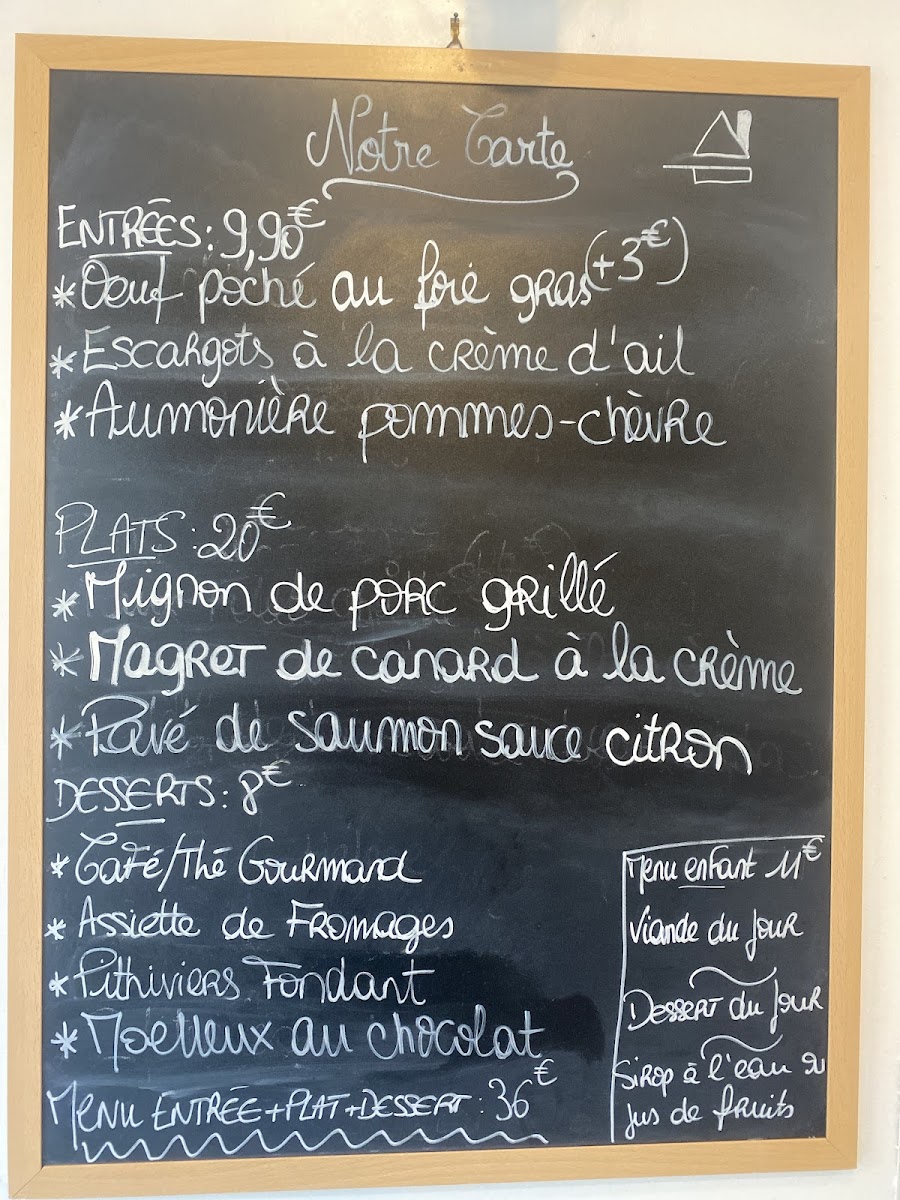 Notre Carte
ENTRÉES : 9,90€
* Oeuf poché au foie gras (+3€)
* Escargots à la crème d'ail
* Aumonière pommes-chèvre
PLATS : 20€
* Mignon de porc grillé
* Magret de canard à la crème
* Pavé de saumon sauce citron
DESSERTS : 8€
* Café/Thé Gourmand
* Assiette de Fromages
* Pithiviers Fondant
* Moelleux au chocolat
MENU ENTRÉE+PLAT+DESSERT : 36€
Menu enfant 11€
Viande du Jour
Dessert du Jour
Sirop à l'eau ou
jus de fruits